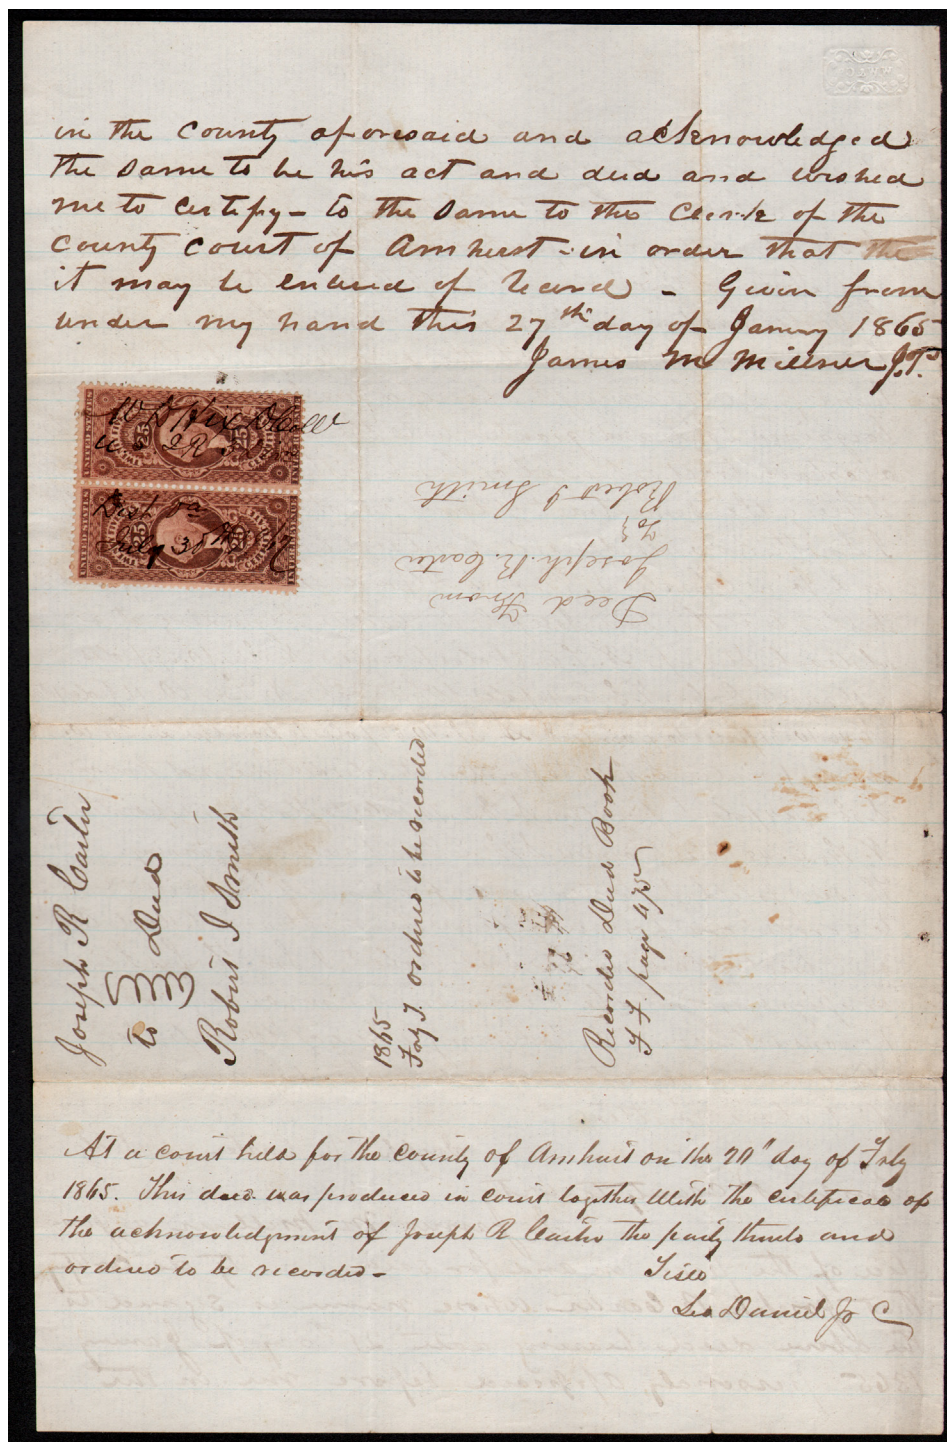 in the county aforesaid and acknowledged
the same to be his act and deed and wished
me to certify - to the same to the Clerk of the
county court of Amherst - in order that the
it may be entered of Record - Given from
under my hand this 27th day of January 1865
James M Millner J.P.
W D Hix D Coll
U S I R
Dist Va
July 30th
Deed From
Joseph R. Carter
To
Robert I Smith
Joseph R Carter
to Deed
Robert I Smith
1865
Feby T. ordered to be recorded
Recorded Deed Book
F F. page 475
At a court held for the county of Amherst on the 20" day of Feby
1865. This deed was produced in court together with the certificate of
the acknowledgment of Joseph R Carter the party thereto and
ordered to be recorded -
Teste
Sam Daniel Jr C